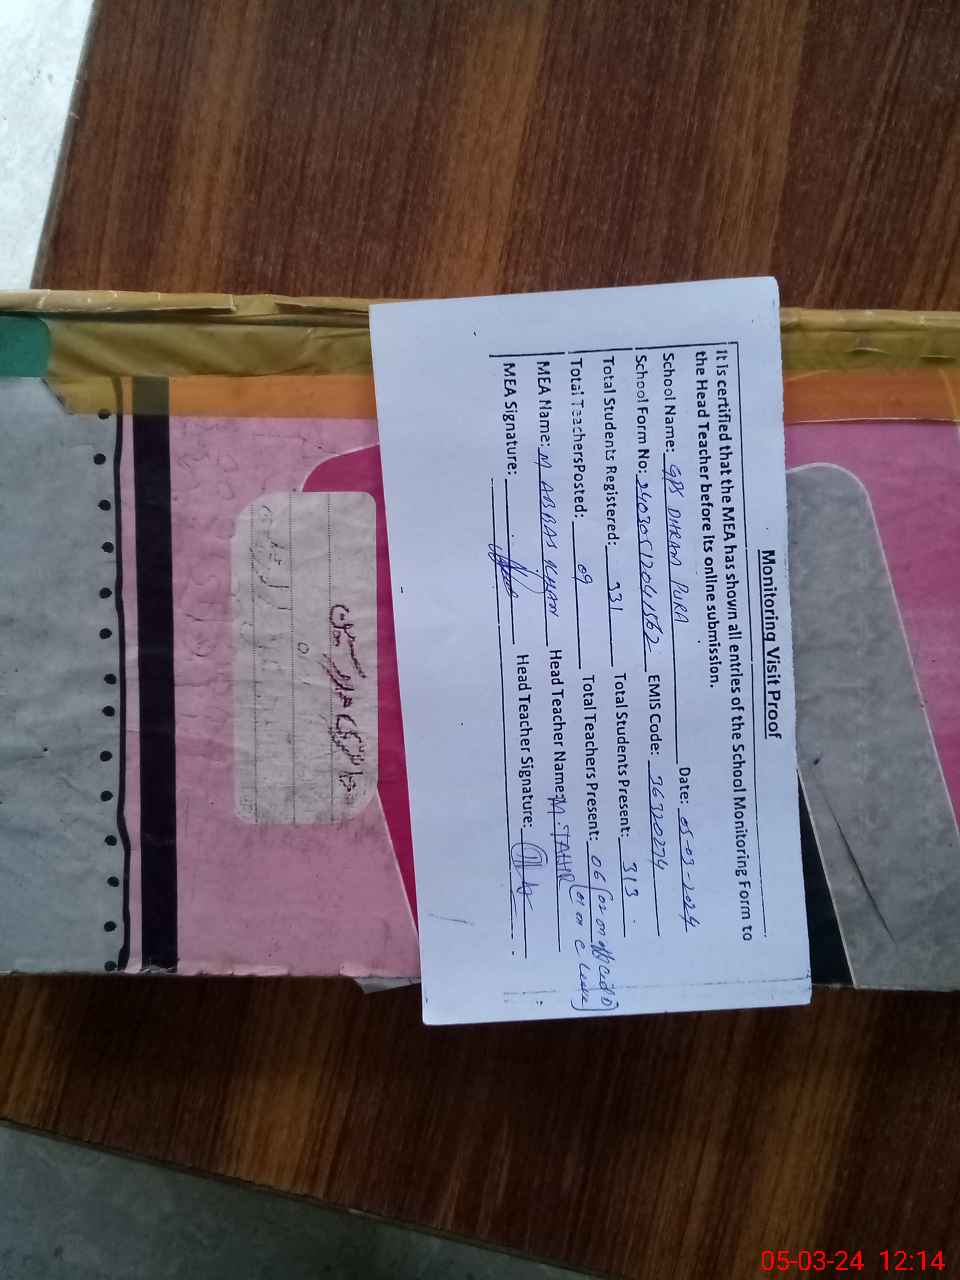 Monitoring Visit Proof
It is certified that the MEA has shown all entries of the School Monitoring Form to
the Head Teacher before its online submission.
School Name: GPS DHRAM PURA Date: 05-03-2024
School Form No: 24030512041562 EMIS Code: 36320274
Total Students Registered: 331 Total Students Present: 313
Total Teachers Posted: 09 Total Teachers Present: 06 (02 on
(01 on C leave)
MEA Name: M ABBAS KHAN Head Teacher Name: M. TAHIR
MEA Signature: Head Teacher Signature:
05-03-24 12:14